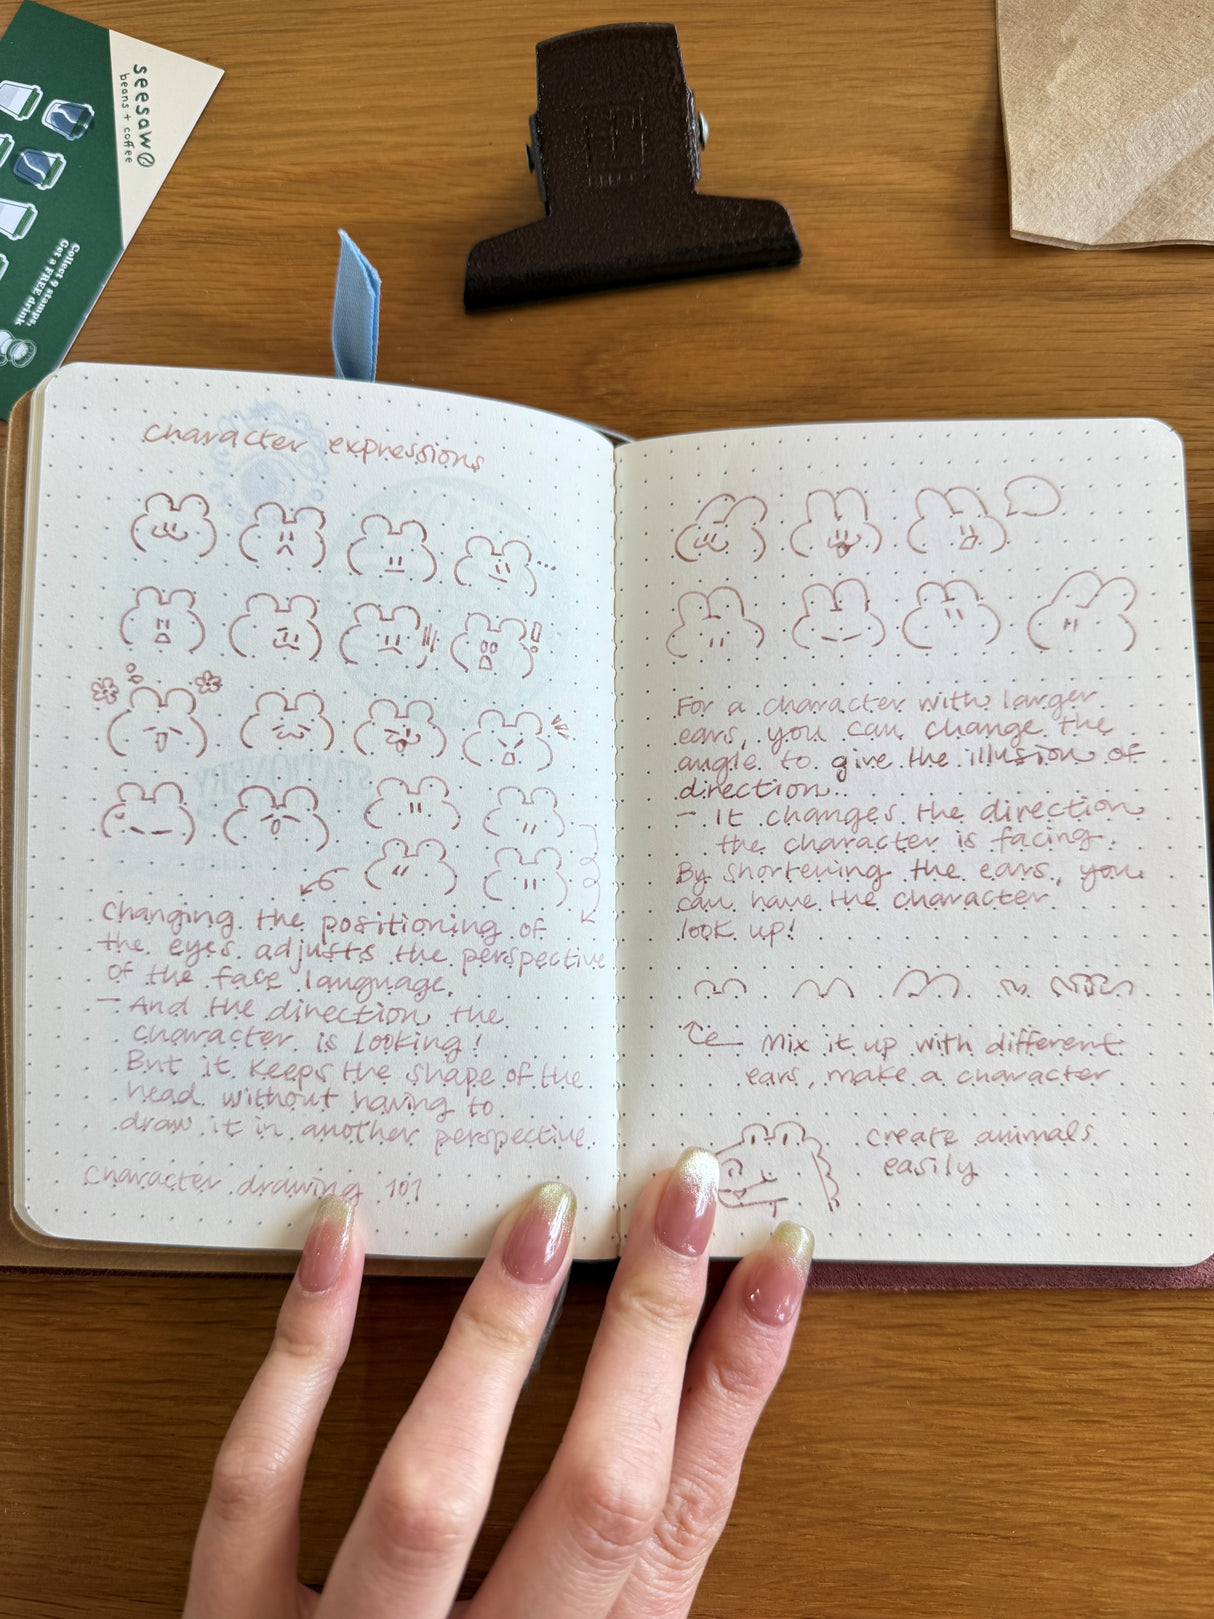 seesaw
beans + coffee
Collect 9 stamps,
Get a FREE drink
character expressions
STATIONERY
Changing the positioning of
the eyes adjusts the perspective
of the face language.
- And the direction the
character is looking!
But it keeps the shape of the
head without having to
draw it in another perspective
Character drawing 101
For a character with larger
ears, you can change the
angle to give the illusion of
direction.
- It changes the direction
the character is facing.
By shortening the ears, you
can have the character
look up!
Mix it up with different
ears, make a character
create animals
easily